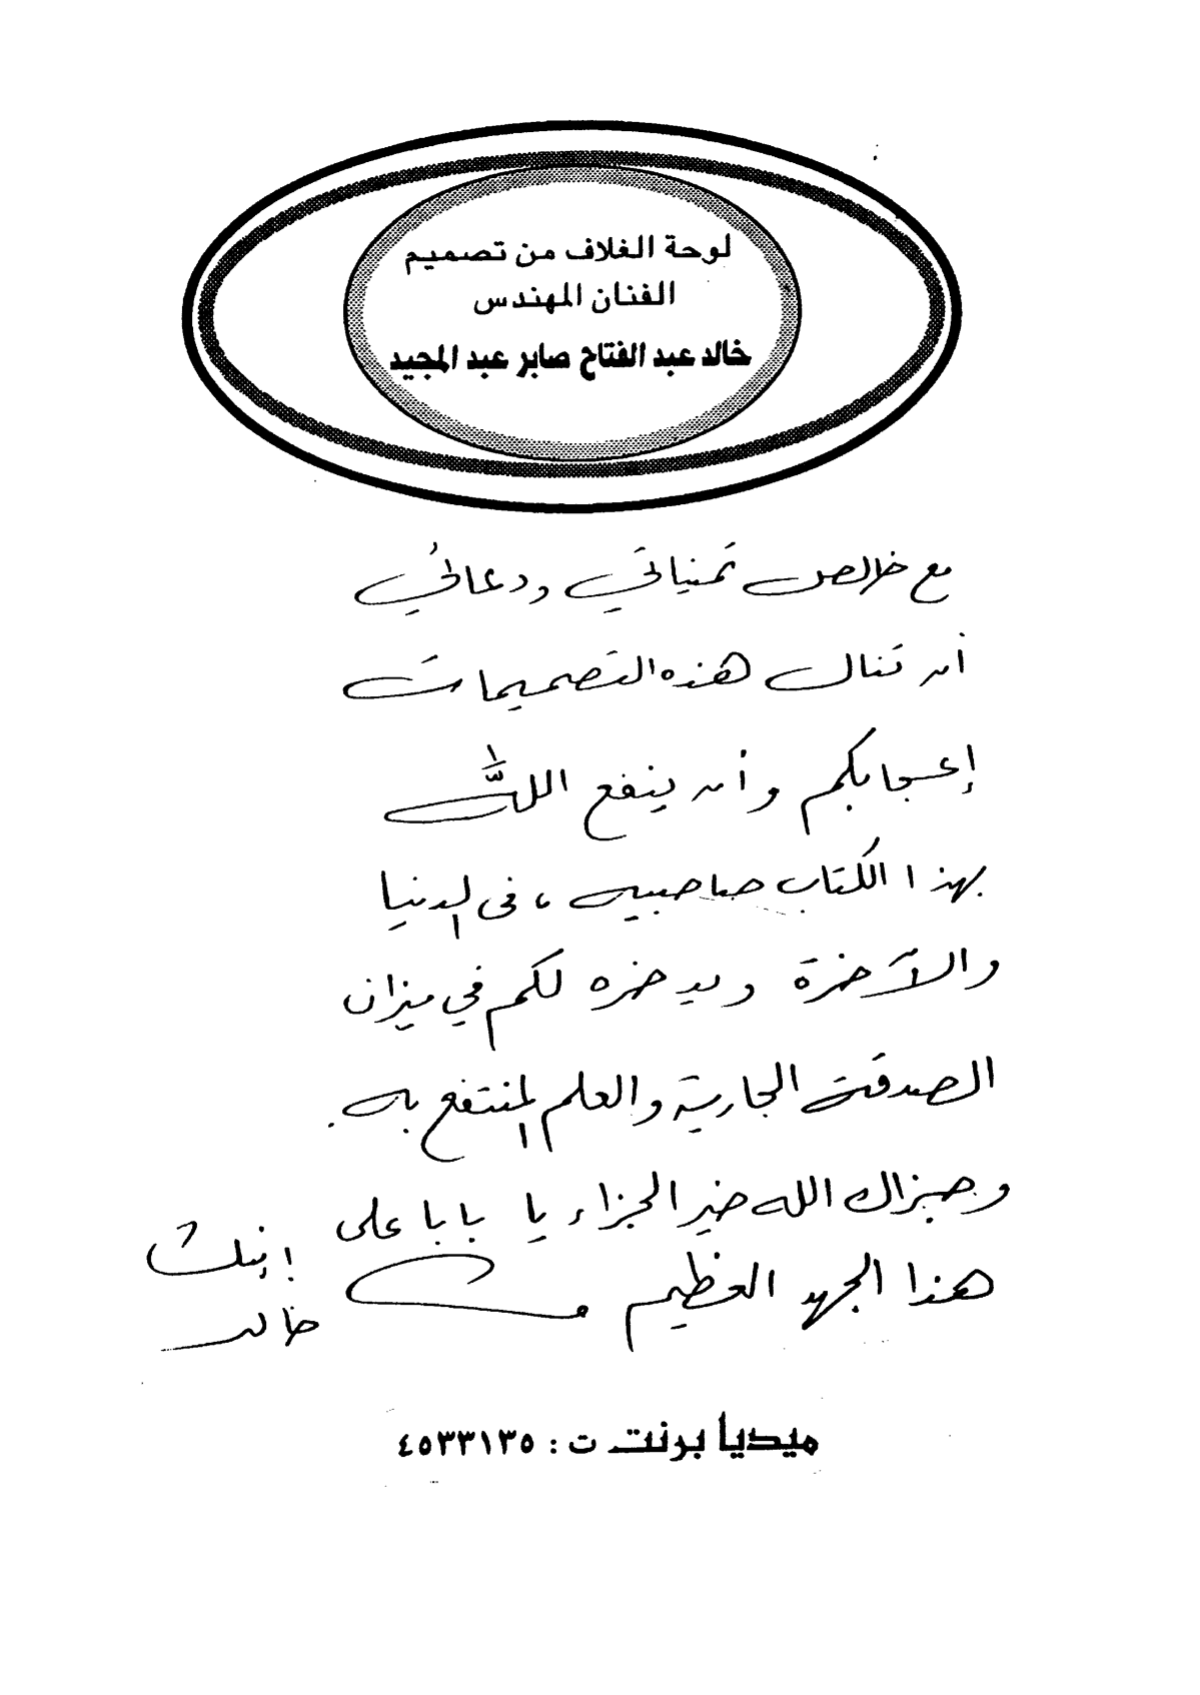 لوحة الغلاف من تصميم
الفنان المهندس
خالد عبد الفتاح صابر عبد المجيد
مع خالص تمنياتي ودعائي
أن تنال هذه التصميمات
إعجابكم وأن ينفع اللّٰه
بهذا الكتاب صاحبيه، في الدنيا
والآخرة ويدخره لكم في ميزان
الصدقة الجارية والعلم المنتفع به.
وجزاك الله خير الجزاء يا بابا على
هذا الجهد العظيم
إبنك
خالد
ميديا برنت ت : ٤٥٣٣١٣٥